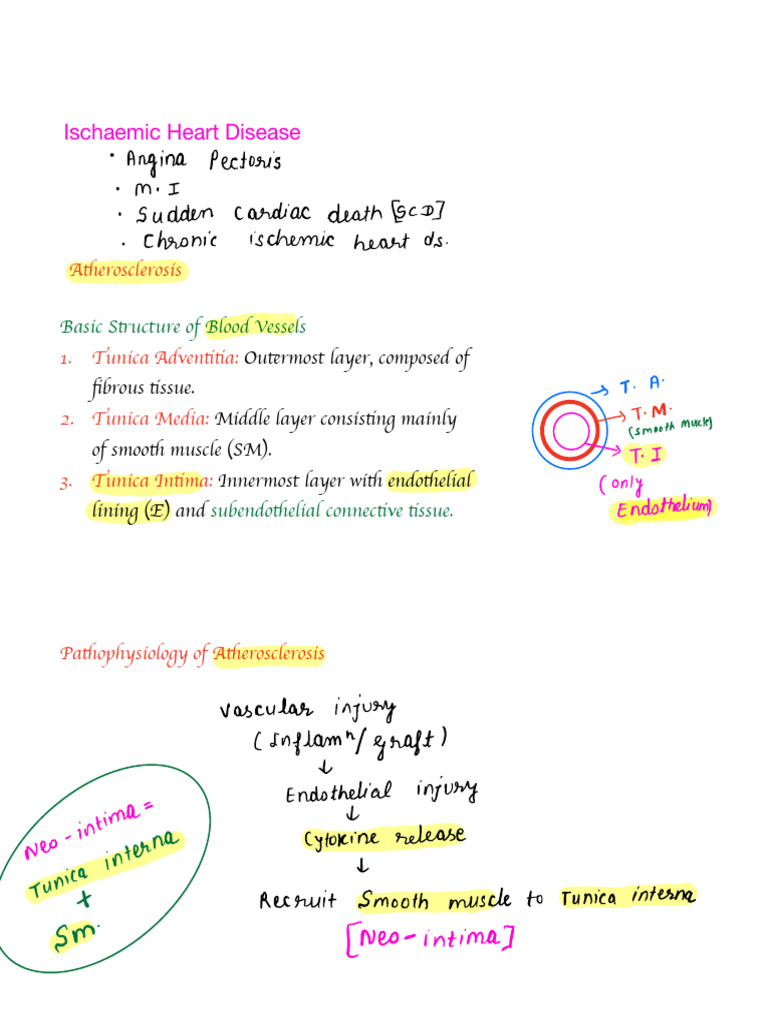 Ischaemic Heart Disease
• Angina Pectoris
• M.I
• Sudden Cardiac death [SCD]
• Chronic ischemic heart ds.
Atherosclerosis
Basic Structure of Blood Vessels
1. Tunica Adventitia: Outermost layer, composed of
fibrous tissue.
2. Tunica Media: Middle layer consisting mainly
of smooth muscle (SM).
3. Tunica Intima: Innermost layer with endothelial
lining (E) and subendothelial connective tissue.
→ T. A.
→ T.M.
(Smooth muscle)
→ T. I
(only
Endothelium)
Pathophysiology of Atherosclerosis
Vascular injury
(Inflamⁿ/graft)
↓
Endothelial injury
↓
Cytokine release
↓
Recruit Smooth muscle to Tunica interna
[Neo-intima]
Neo-intima =
Tunica interna
+
Sm.